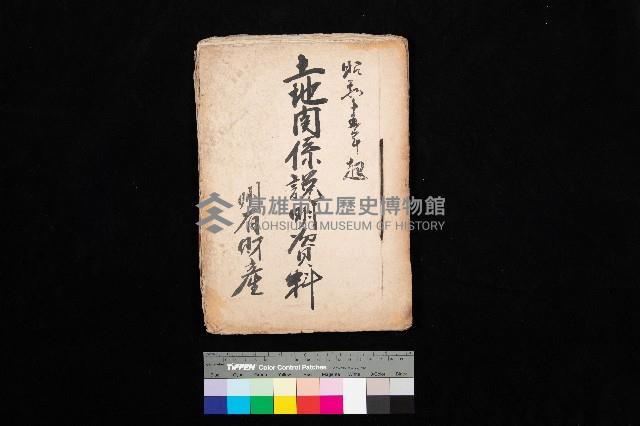 昭和十五年起
土地関係説明資料
州有財産
高雄市立歷史博物館
KAOHSIUNG MUSEUM OF HISTORY
TIFFEN Color Control Patches
Blue Cyan Green Yellow Red Magenta White 3-Color Black